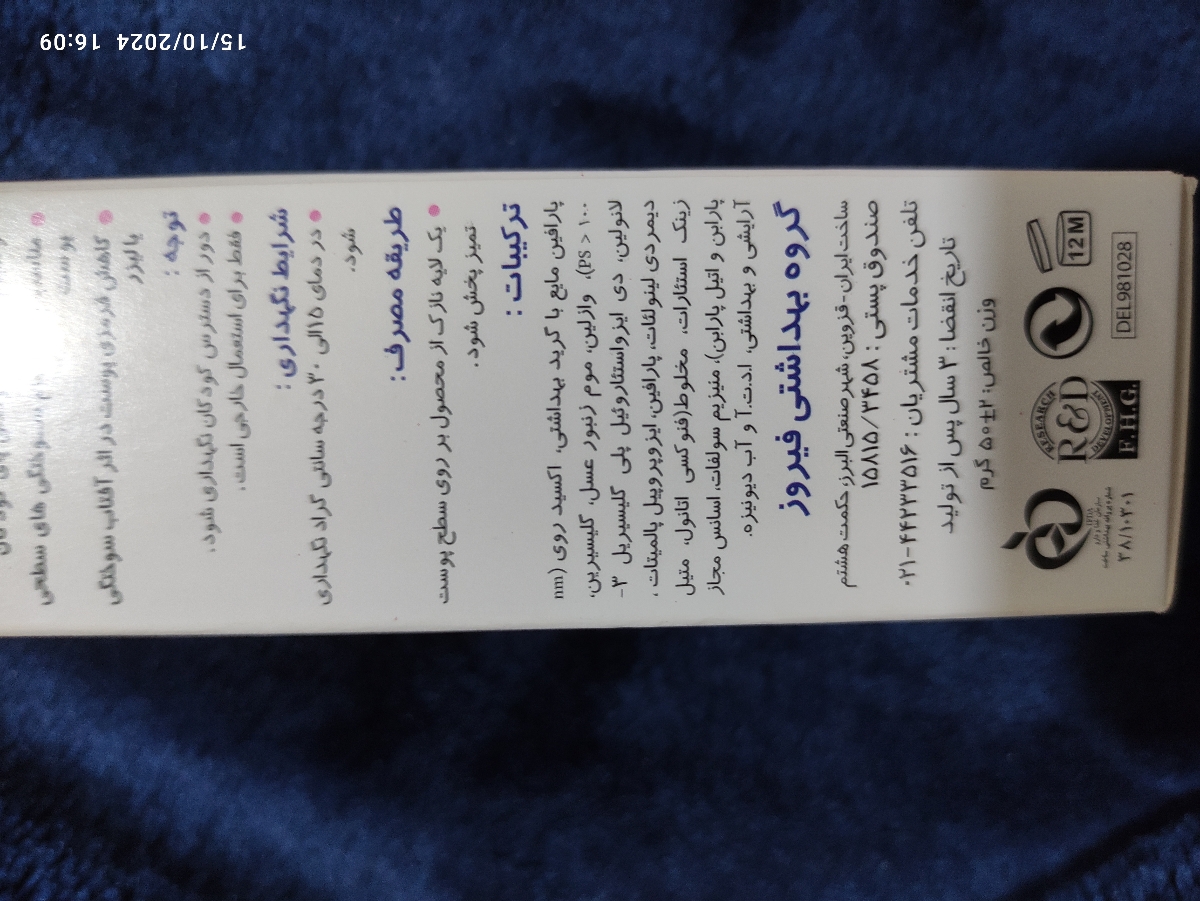 پوست
ترم سوختگی های سطحی
کاهش قرمزی پوست در اثر آفتاب سوختگی
یا لیزر
توجه :
دور از دسترس کودکان نگهداری شود.
فقط برای استعمال خارجی است.
شرایط نگهداری :
در دمای ۱۵الی ۳۰ درجه سانتی گراد نگهداری
شود.
طریقه مصرف :
یک لایه نازک از محصول بر روی سطح پوست
تمیز پخش شود.
ترکیبات :
پارافین مایع با گرید بهداشتی، اکسید روی (nm
۱۰۰ < PS)، وازلین، موم زنبور عسل، گلیسیرین،
لانولین، دی ایزواستئاروئیل پلی گلیسیریل ۳-
دیمردی لینولئات، پارافین، ایزوپروپیل پالمیتات،
زینک استئارات، مخلوط(فنوکسی اتانول، متیل
پارابن و اتیل پارابن)، منیزیم سولفات، اسانس مجاز
آرایشی و بهداشتی، ا.د.ت.آ و آب دیونیزه.
گروه بهداشتی فیروز
ساخت ایران-قزوین، شهر صنعتی البرز، حکمت هشتم
صندوق پستی : ۱۵۸۱۵/۳۴۵۸
تلفن خدمات مشتریان : ۴۴۲۳۳۵۱۶-۰۲۱
تاریخ انقضا : ۳ سال پس از تولید
وزن خالص: ۲±۵۰ گرم
12M
RESEARCH
R&D
DEVELOPMENT
F.H.G.
۳۸/۱۰۳۰۱
DEL981028
15/10/2024 16:09